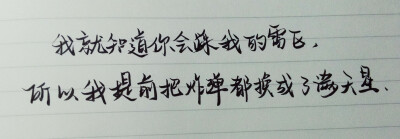 我就知道你会踩我的雷区，
所以我提前把炸弹都换成了满天星.